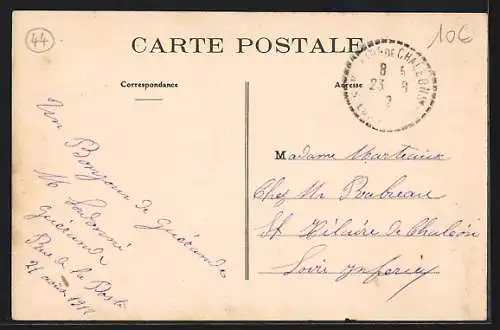 44
CARTE POSTALE
10€
Correspondance
Adresse
DE CHALEONS
8
23 8
Un Bonjour de Guérande
Guérande
Rue de la Poste
21 août 1912
Madame Marteaux
Chez Mr
St Hilaire de Chaleon
Loire Inferieu